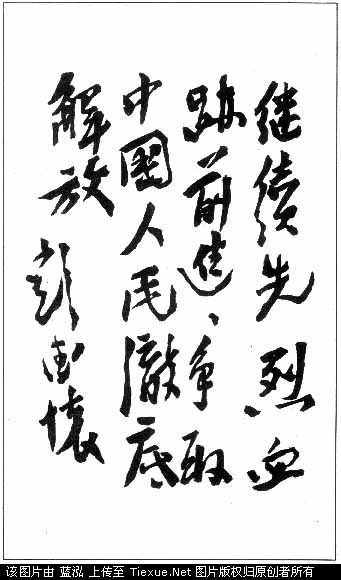 继续先烈血
跡前進、争取
中國人民澈底
解放 彭德懷
该图片由 蓝泓 上传至 Tiexue.Net 图片版权归原创者所有